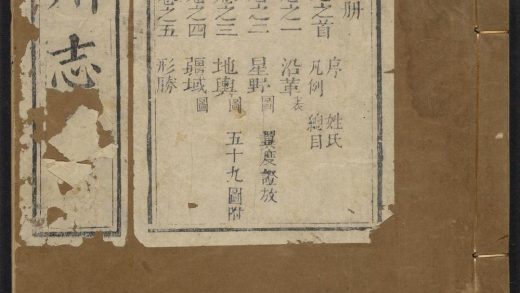 册
之首 序 姓氏
凡例 總目
之一 沿革表
之二 星野圖 度
之三 地輿圖 五十九圖附
之四 疆域圖
之五 形勝
志